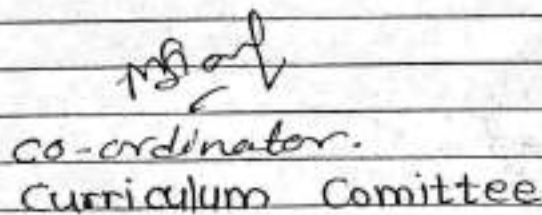 co-ordinator.
Curriculum Comittee